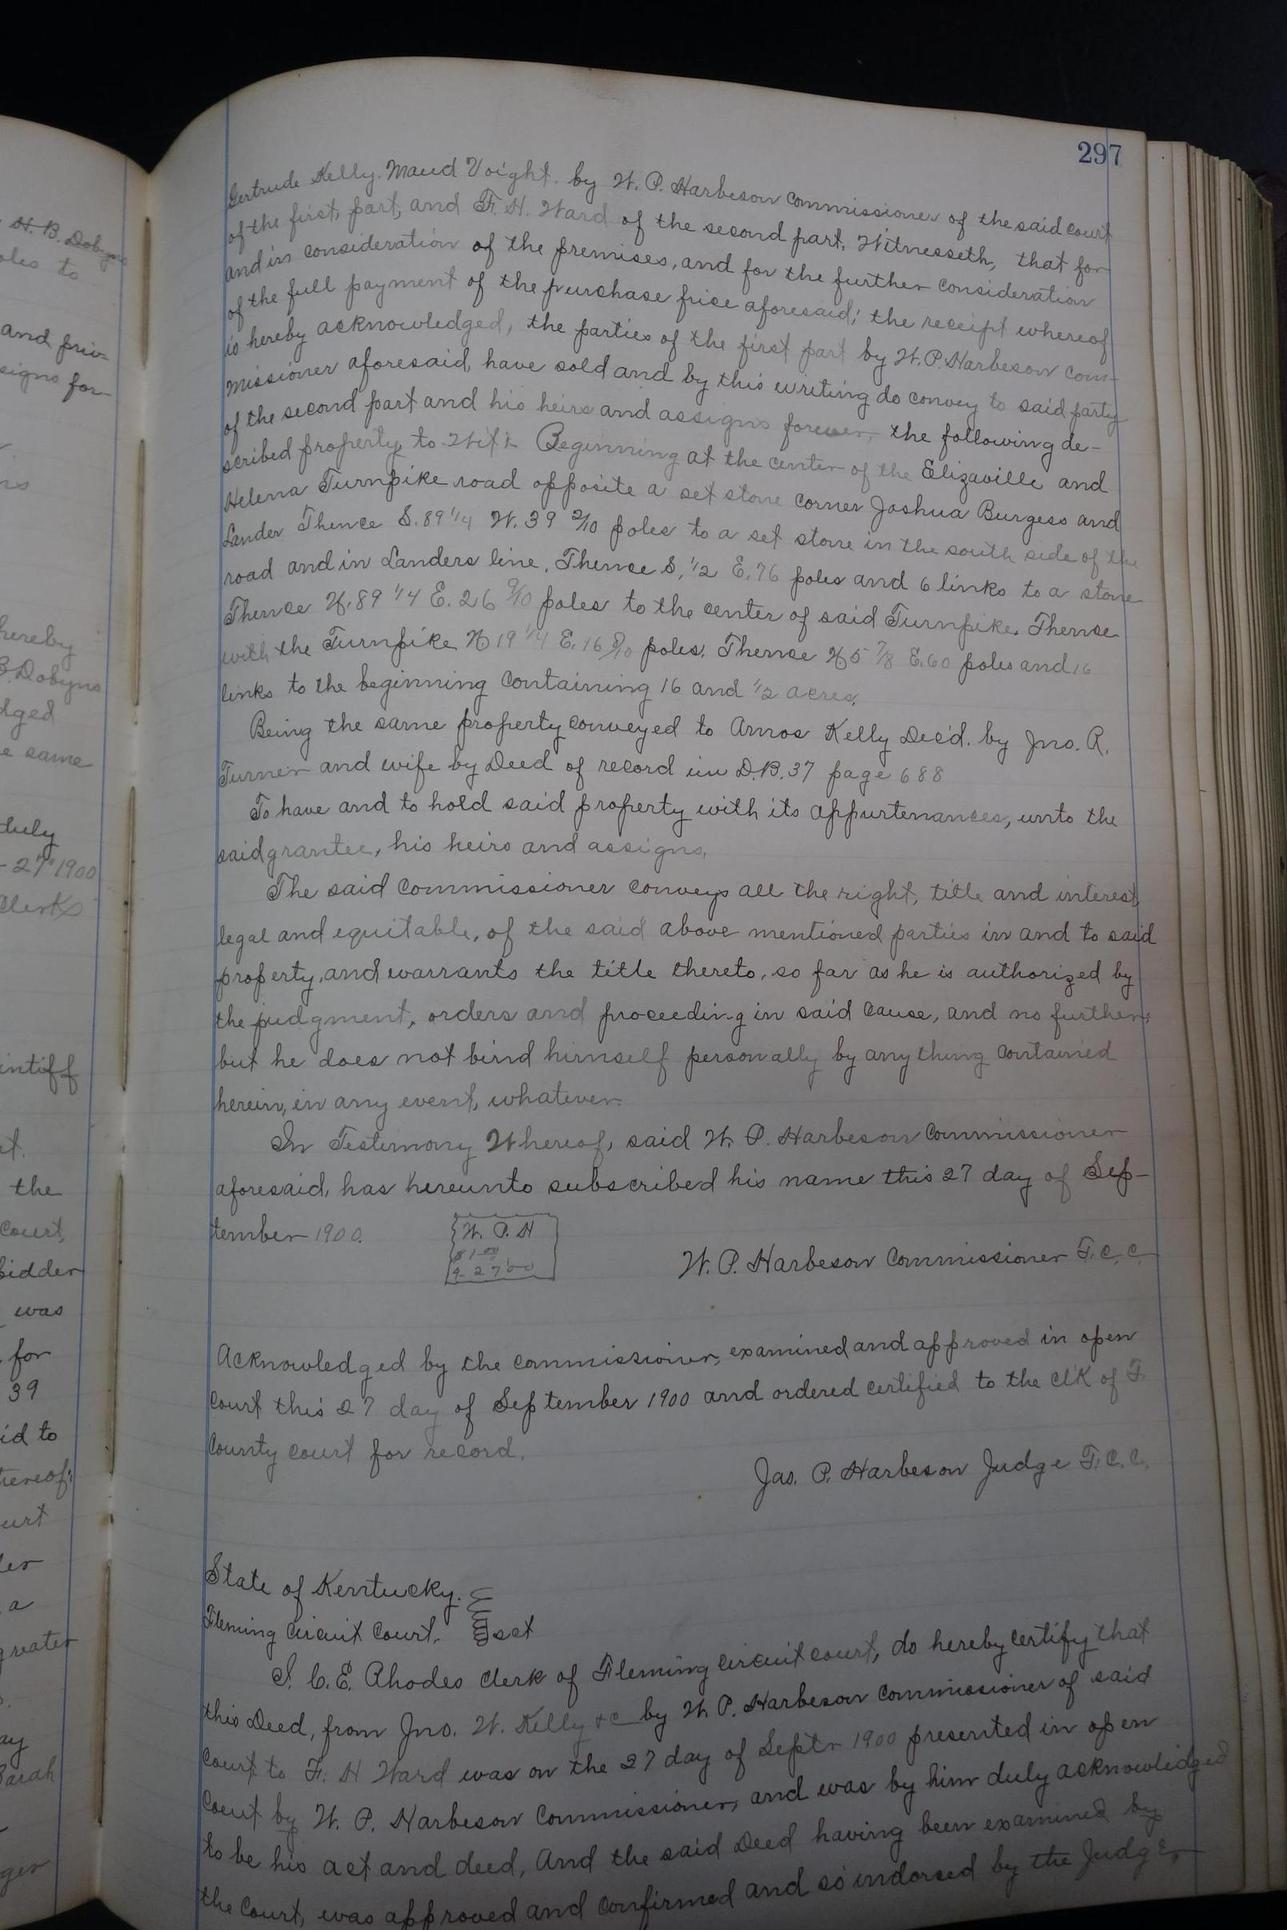 297
Gertrude Kelly. Maud Voight. by W. P. Harbeson Commissioner of the said court
of the first part, and F. H. Ward of the second part, Witnesseth, that for
and in consideration of the premises, and for the further consideration
of the full payment of the purchase price aforesaid; the receipt whereof
is hereby acknowledged, the parties of the first part by W. P. Harbeson Com-
missioner aforesaid, have sold and by this writing do convey to said party
of the second part and his heirs and assigns forever, the following de-
scribed property to-Wit:- Beginning at the center of the Elizaville and
Helena Turnpike road opposite a set stone corner Joshua Burgess and
Lander Thence S. 89 1/4 W. 39 2/10 poles to a set stone in the south side of the
road and in Landers line, Thence S, 1/2 E. 76 poles and 6 links to a stone
Thence N. 89 1/4 E. 26 9/10 poles to the center of said Turnpike. Thense
with the Turnpike N 19 1/4 E. 16 8/10 poles. Thense N 5 7/8 E. 60 poles and 16
links to the beginning Containing 16 and 1/2 acres,
Being the same property conveyed to Amos Kelly Dec'd. by Jno. R.
Turner and wife by Deed of record in D. B. 37 page 688
To have and to hold said property with its appurtenances, unto the
said grantee, his heirs and assigns,
The said Commissioner conveys all the right, title and interest,
legal and equitable, of the said above mentioned parties in and to said
property, and warrants the title thereto, so far as he is authorized by
the judgment, orders and proceeding in said cause, and no further;
but he does not bind himself personally by any thing contained
herein, in any event, whatever.
In Testimony Whereof, said W. P. Harbeson Commissioner
aforesaid, has hereunto subscribed his name this 27 day of Sep-
tember 1900.
W. P. H
$1.00
9-27 00
W. P. Harbeson Commissioner F. C. C.
Acknowledged by the commissioner, examined and approved in open
court this 27 day of September 1900 and ordered certified to the Clk of F.
County court for record.
Jas. P. Harbeson Judge F. C. C.
State of Kentucky.
Fleming Circuit Court. sct
I. C. E. Rhodes Clerk of Fleming Circuit court, do hereby certify that
this Deed, from Jno. W. Kelly &c by W. P. Harbeson Commissioner of said
Court, to F. H Ward was on the 27 day of Septr 1900 presented in open
Court by W. P. Harbeson Commissioner, and was by him duly acknowledged
to be his act and deed, And the said Deed having been examined by
the Court, was approved and Confirmed and so indorsed by the Judge,